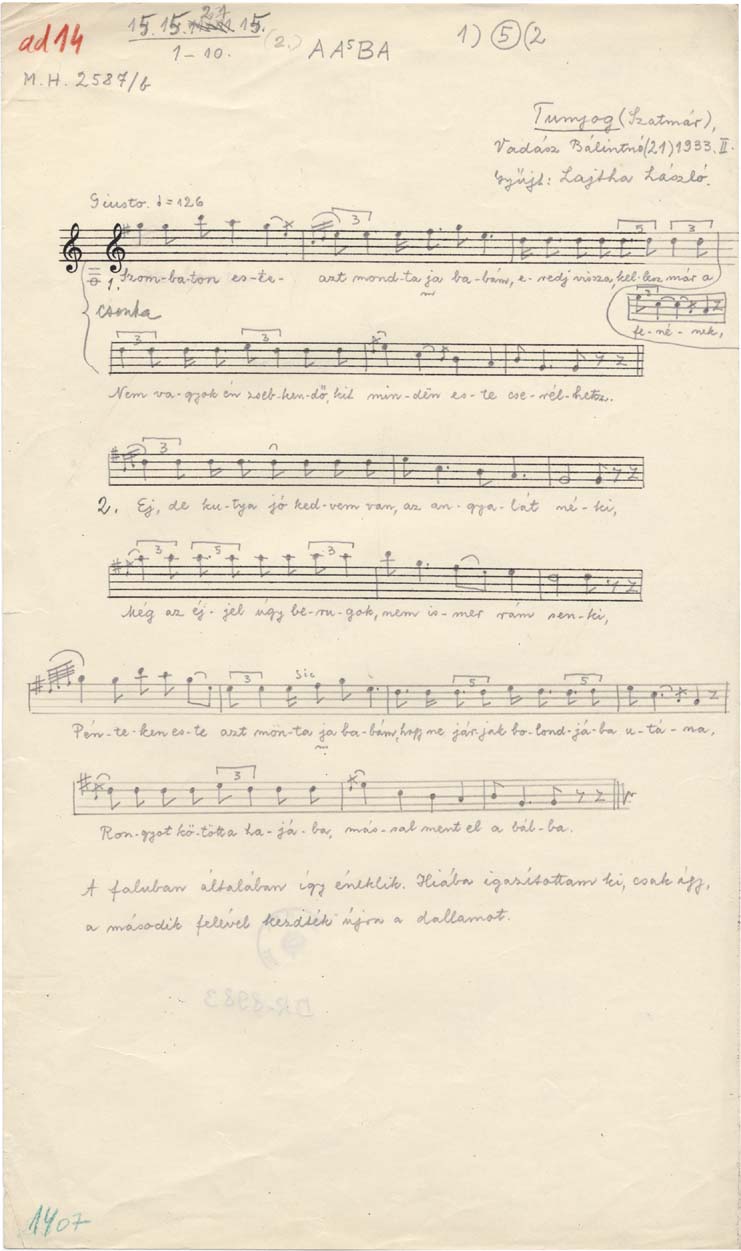 ad 14
15. 15. 21 15.
1 – 10.
(2.)
A A⁵ B A
1) ⑤ (2
M. H. 2587/b
Tunyog (Szatmár),
Vadász Bálintné (21) 1933. II.
Gyűjt: Lajtha László.
Giusto. = 126
1. Szom-ba-ton es-te- azt mond-ta ja ba-bám, e-redj vissza, kel-lesz már a
fe-né-nek,
csonka
Nem va-gyok én zseb-ken-dő, kit min-dën es-te cse-rél-hetsz.
2. Ej, de ku-tya jó ked-vem van, az an-gya-lát né-ki,
Még az éj-jel úgy be-ru-gok, nem is-mer rám sen-ki,
sic
Pén-te-ken es-te azt mon-ta ja ba-bám, hogy ne jár-jak bo-lond-já-ba u-tá-na,
Ron-gyot kö-tött a ha-já-ba, más-sal ment el a bál-ba.
A faluban általában így éneklik. Hiába igazítottam ki, csak úgy,
a második felével kezdték újra a dallamot.
DR-8983
1407